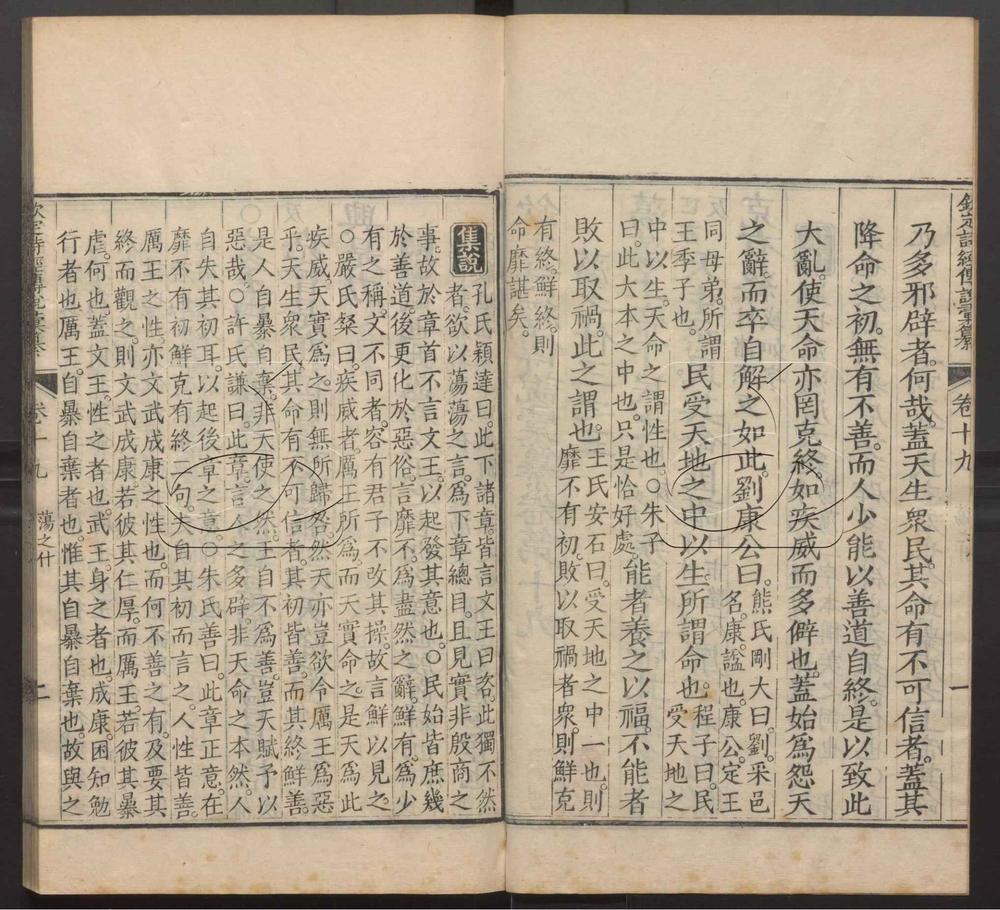 欽定詩經傳說彙纂 卷十九 一
乃多邪辟者。何哉。蓋天生眾民。其命有不可信者。蓋其
降命之初。無有不善。而人少能以善道自終。是以致此
大亂。使天命亦罔克終。如疾威而多僻也。蓋始爲怨天
之辭。而卒自解之如此。劉康公曰。
熊氏剛大曰。劉。采邑
名。康。諡也。康公。定王
同母弟。所謂
王季子也。
民受天地之中以生。所謂命也。
程子曰。民
受天地之
中以生。天命之謂性也。○朱子
曰。此大本之中也。只是恰好處。
能者養之以福。不能者
敗以取禍。此之謂也。
王氏安石曰。受天地之中一也。則
靡不有初。敗以取禍者眾。則鮮克
有終。鮮終。則
命靡諶矣。
集說 孔氏穎達曰。此下諸章。皆言文王曰咨。此獨不然
者。欲以蕩蕩之言。爲下章總目。且見實非殷商之
事。故於章首不言文王。以起發其意也。○民始皆庶幾
於善道。後更化於惡俗。言靡不。爲盡然之辭。鮮有。爲少
有之稱。文不同者。容有君子不改其操。故言鮮以見之。
○嚴氏粲曰。疾威者。厲王所爲。而天實命之。是天爲此
疾威。天實爲之。則無所歸咎。然天亦豈欲令厲王爲惡
乎。特天生眾民。其命有不可信者。其初皆善。而其終鮮善。
是人自暴自棄。非天使之然。王自不爲善。豈天賦予以
惡哉。○許氏謙曰。此章。言人之多辟。非天命之本然。人
自失其初耳。以起後章之意。○朱氏善曰。此章正意。在
靡不有初鮮克有終二句。夫自其初而言之。人性皆善。
厲王之性。亦文武成康之性也。而何不善之有。及要其
終而觀之。則文武成康若彼其仁厚。而厲王。若彼其暴
虐。何也。蓋文王。性之者也。武王。身之者也。成康。困知勉
行者也。厲王。自暴自棄者也。惟其自暴自棄也。故與之
欽定詩經傳說彙纂 卷十九 蕩之什 二